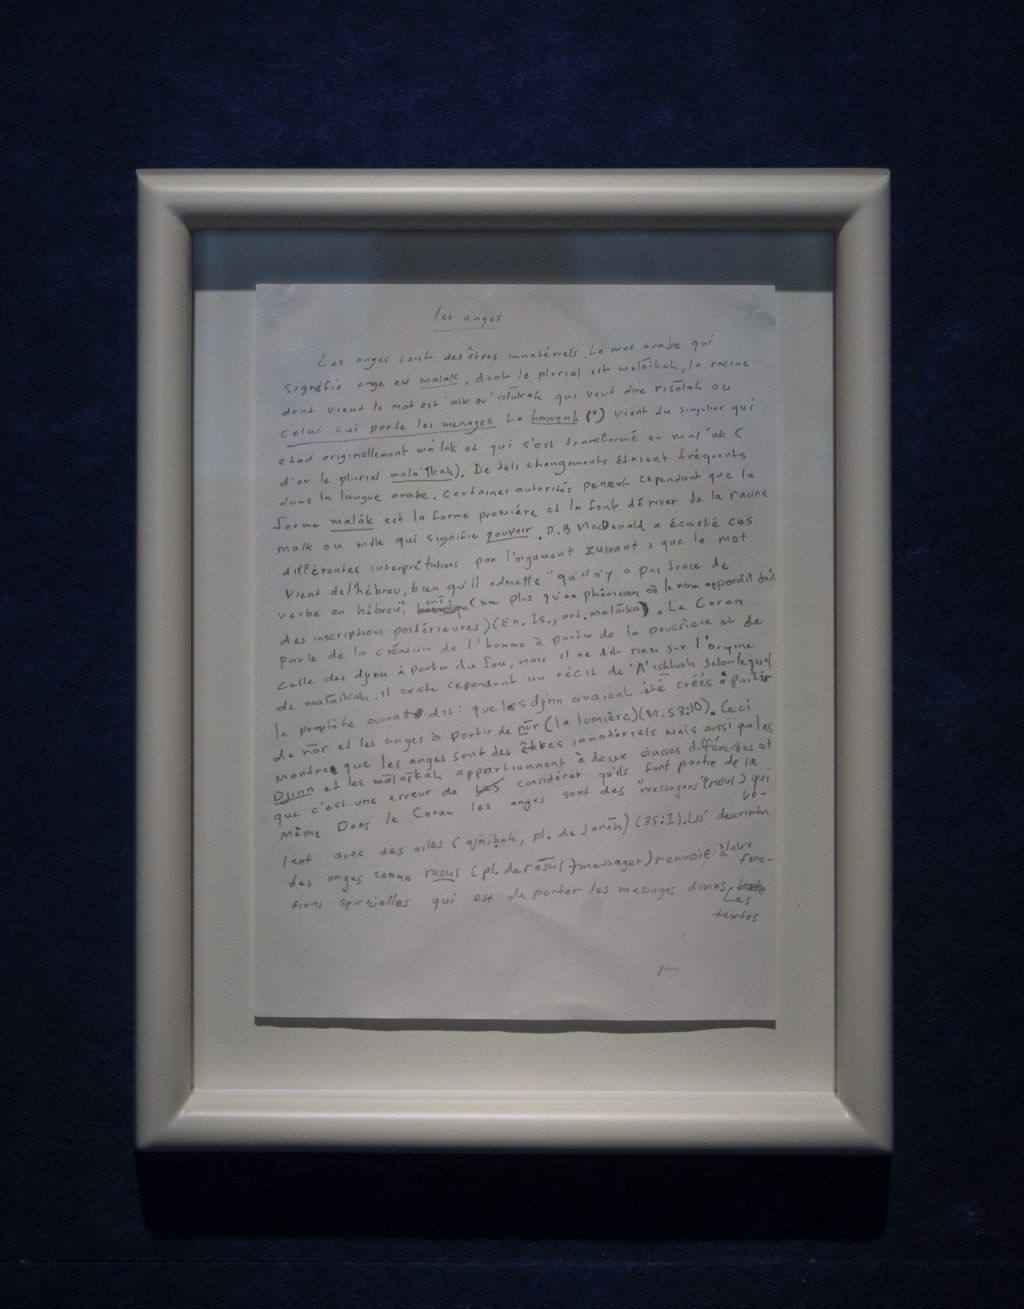 les anges
Les anges sont des êtres immatériels. Le mot arabe qui
signifie ange est malak, dont le pluriel est malāikah, la racine
dont vient le mot est 'alk ou 'alūkah qui veut dire risālah ou
celui qui porte les messages. Le hamzah (') vient du singulier qui
etait originellement ma'lak et qui s'est transformé en mal'ak (
d'ou le pluriel mala'īkah). De tels changements étaient fréquents
dans la langue arabe. Certaines autorités pensent cependant que la
forme malāk est la forme première et la font dériver de la racine
malk ou milk qui signifie pouvoir. D.B MacDonald a écarté ces
différentes interprétations par l'argument suivant, que le mot
vient de l'hébreu, bien qu'il admette "qu'il n'y a pas trace de
verbe en hébreu", (non plus qu'en phénicien où le nom apparait dans
des inscriptions postérieures) (En. Is., art. malāika). Le Coran
parle de la création de l'homme à partir de la poussière et de
celle des djinn à partir du feu, mais il ne dit rien sur l'origine
de malāikah. Il existe cependant un récit de 'A'ishhah selon lequel
le prophète aurait dit: que les djinn avaient été créés à partir
de nār et les anges à partir de nūr (la lumière) (M. 53:10). Ceci
montre que les anges sont des êtres immatériels mais aussi que les
Djinn et les mālaīkah appartiennent à deux classes différentes et
que c'est une erreur de considérer qu'ils font partie de la
même. Dans le Coran les anges sont des "messagers" (rusul) qui
vo-
lent avec des ailes (ajniḥah, pl. de janāh) (35:I). Les description
des anges comme rusul (pl. de rasūl messager) renvoie à leur
fonc-
tions spirielles qui est de porter les messages divins
Les
textes